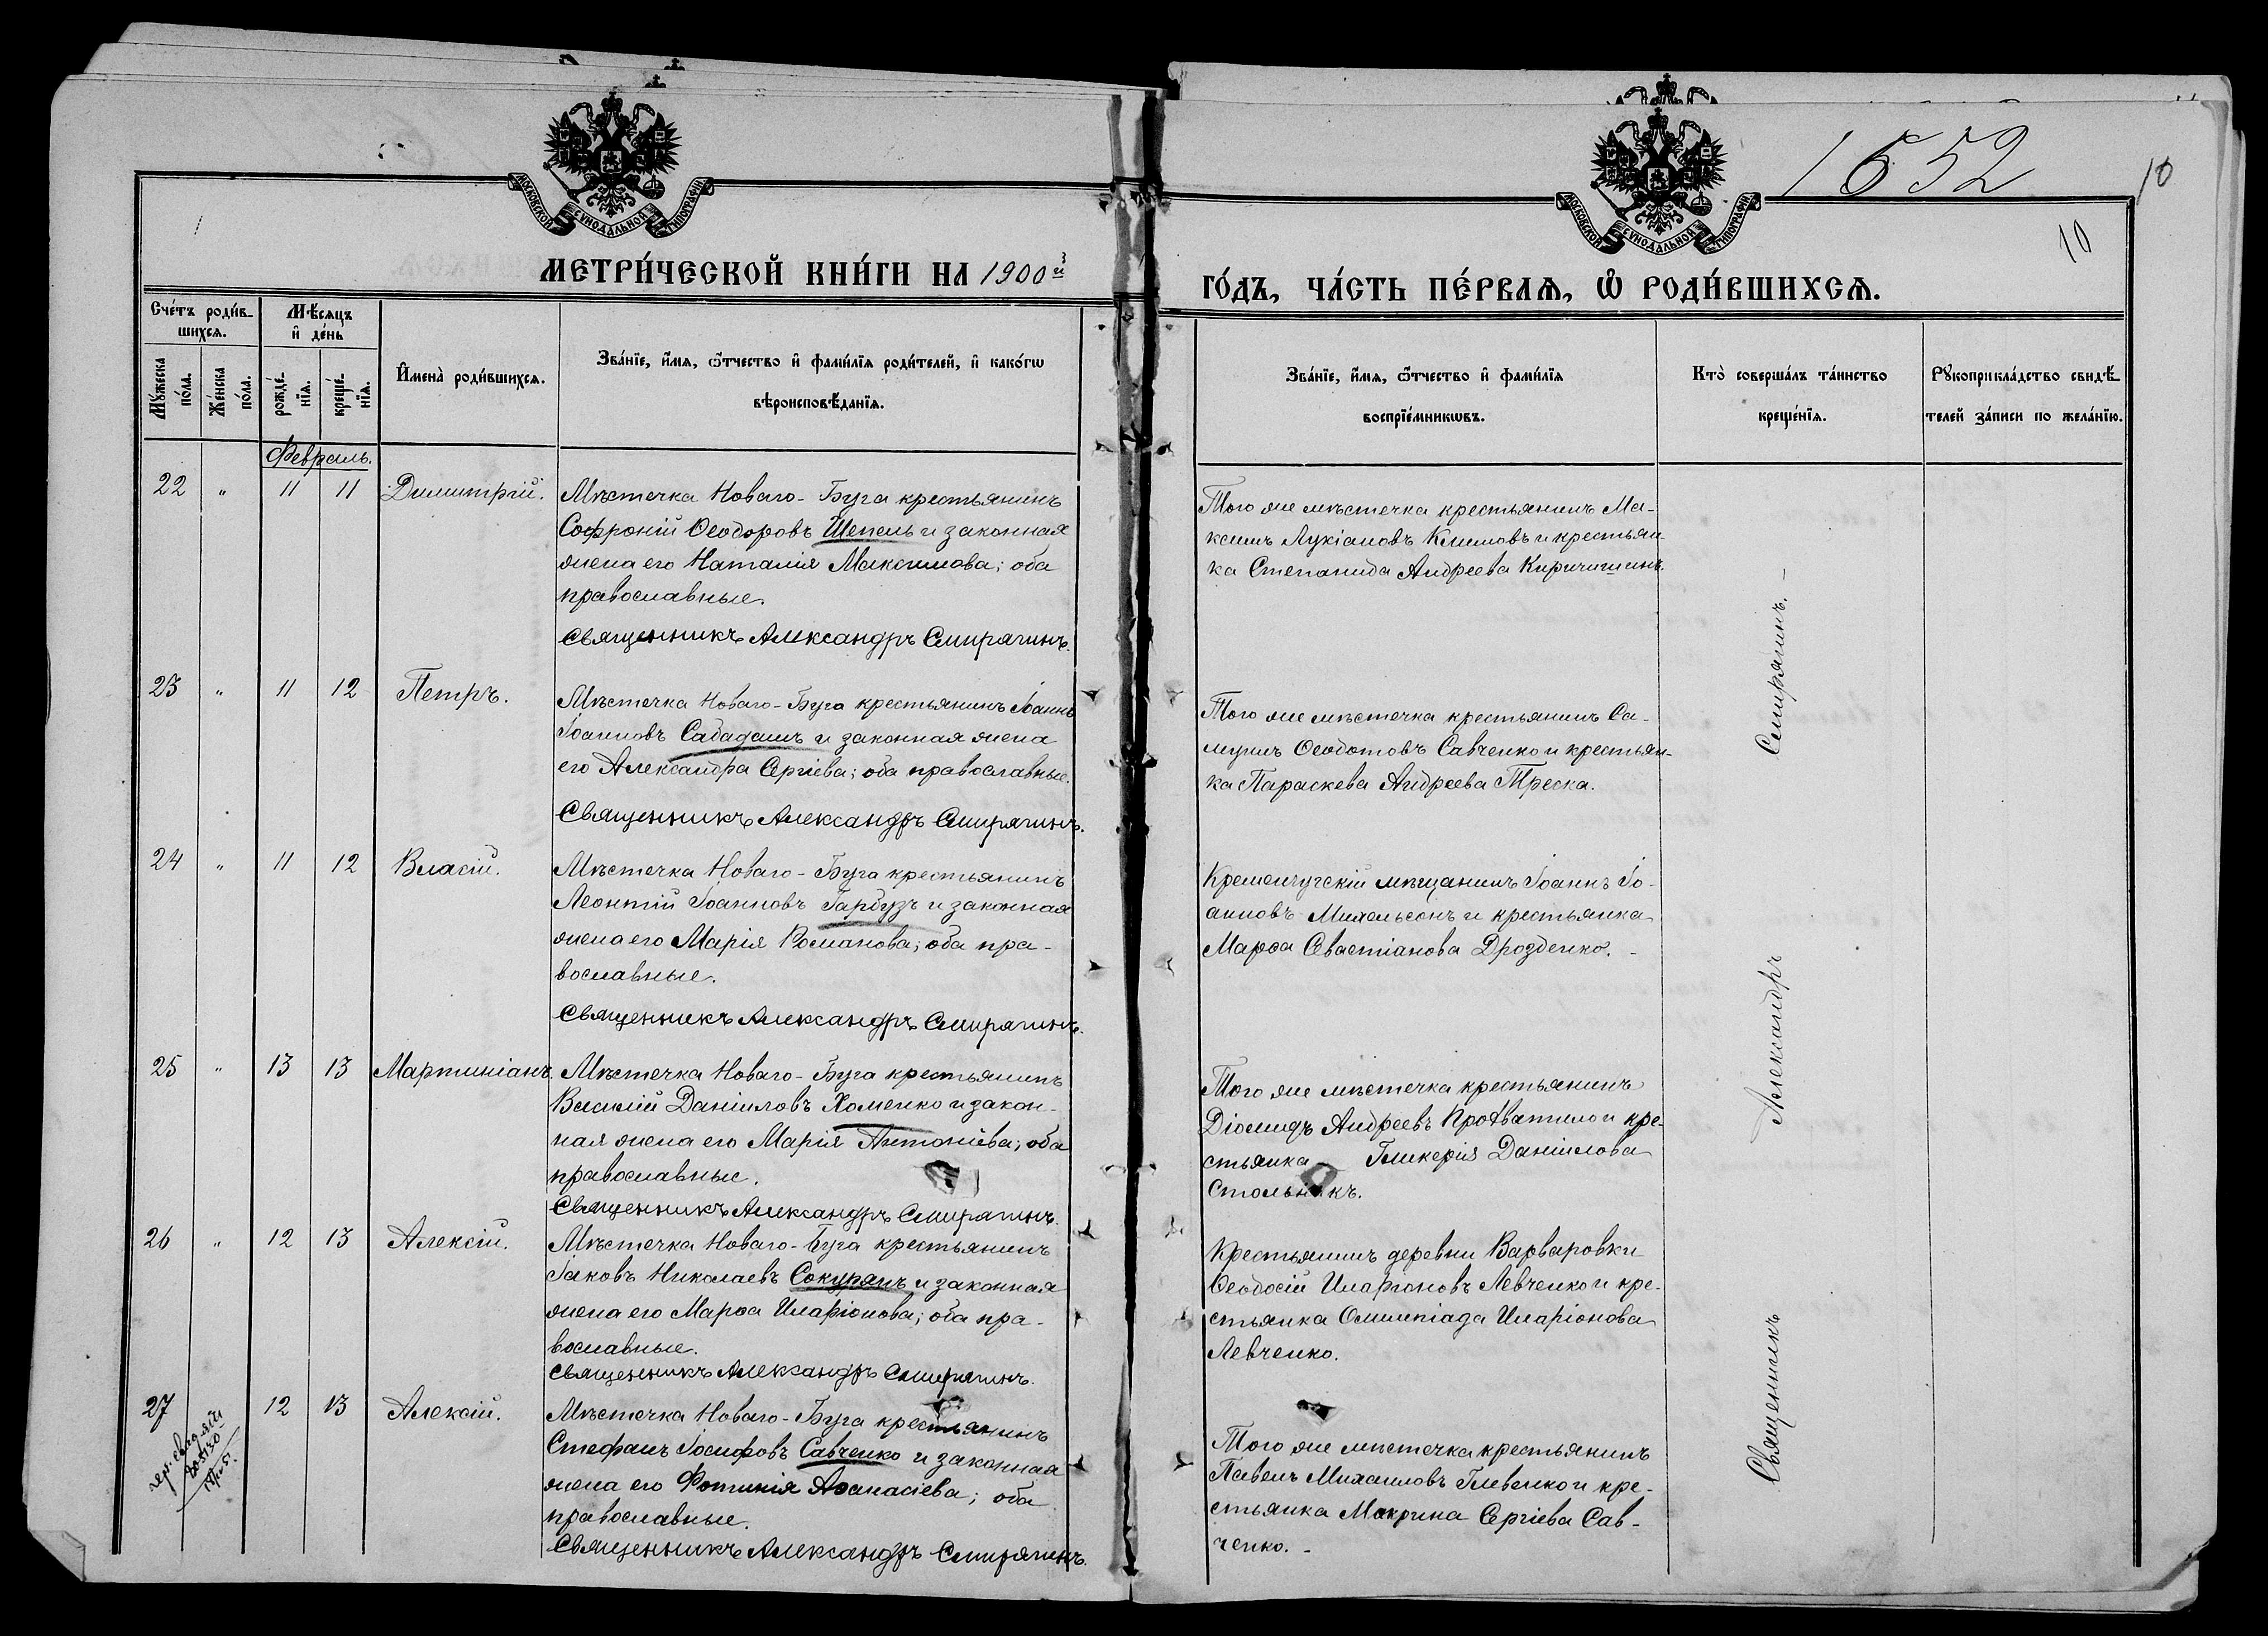 1652
10
10
МОСКОВСКОЙ СУНОДАЛЬНОЙ ТИПОГРАФІИ
МОСКОВСКОЙ СУНОДАЛЬНОЙ ТИПОГРАФІИ
МЕТРИ́ЧЕСКОЙ КНИ́ГИ НА 1900й
ГО́ДЪ, ЧА́СТЬ ПЕ́РВАѦ, Ѡ҆ РОДИ́ВШИХСѦ.
Сче́тъ роди́в-
шихсѧ.
Мѣ́сѧцъ
и҆ де́нь
Мꙋ́жеска
по́ла.
Же́нска
по́ла.
рожде́-
нїѧ.
креще́-
нїѧ.
И҆мена̀ роди́вшихсѧ.
Зва́нїе, и҆́мѧ, ѻ҆́тчество и҆ фами́лїѧ роди́телей, и҆ како́гѡ
вѣроисповѣ́данїѧ.
Зва́нїе, и҆́мѧ, ѻ҆́тчество и҆ фами́лїѧ
воспрїе́мникѡвъ.
Кто̀ соверша́лъ та́инство
креще́нїѧ.
Рꙋкоприкла́дство свидѣ́-
телей за́писи по жела́нїю.
Февраль.
22 " 11 11 Димитрій. Мѣстечка Новаго-Буга крестьянинъ
Софроній Ѳеодоровъ Шепель и законная
жена его Наталія Максимова; оба
православные.
Священникъ Александръ Смирягинъ.
Того же мѣстечка крестьянинъ Ма-
ксимъ Лукіановъ Климовъ и крестьян-
ка Степанида Андреева Киричишинъ.
23 " 11 12 Петръ. Мѣстечка Новаго-Буга крестьянинъ Іоаннъ
Іоанновъ Сабадашъ и законная жена
его Александра Сергіева; оба православные.
Священникъ Александръ Смирягинъ.
Того же мѣстечка крестьянинъ Са-
муилъ Ѳеодотовъ Савченко и крестьян-
ка Параскева Андреева Треска.
24 " 11 12 Власій. Мѣстечка Новаго-Буга крестьянинъ
Леонтій Іоанновъ Гарбузъ и законная
жена его Марія Романова; оба пра-
вославные.
Священникъ Александръ Смирягинъ.
Кременчугскій мѣщанинъ Іоаннъ Іо-
анновъ Михельсонъ и крестьянка
Марѳа Севастіанова Дрозденко. -
25 " 13 13 Мартиніанъ. Мѣстечка Новаго-Буга крестьянинъ
Василій Даніиловъ Хоменко и закон-
ная жена его Марія Антоніева; оба
православные.
Священникъ Александръ Смирягинъ.
Того же мѣстечка крестьянинъ
Діомидъ Андреевъ и кре-
стьянка Гликерія Даніилова
Стольникъ.
26 " 12 13 Алексій. Мѣстечка Новаго-Буга крестьянинъ
Іаковъ Николаевъ Сокурянъ и законная
жена его Марѳа Иларіонова; оба пра-
вославные.
Священникъ Александръ Смирягинъ.
Крестьянинъ деревни Варваровки
Ѳеодосій Иларіоновъ Левченко и кре-
стьянка Олимпіада Иларіонова
Левченко.
27 12 13 Алексій. Мѣстечка Новаго-Буга крестьянинъ
Стефанъ Іосифовъ Савченко и законная
жена его Фотинія Аѳанасіева; оба
православные.
Священникъ Александръ Смирягинъ.
Того же мѣстечка крестьянинъ
Павелъ Михаиловъ Глевенко и кре-
стьянка Макрина Сергіева Сав-
ченко. -
Священникъ Александръ Смирягинъ. -